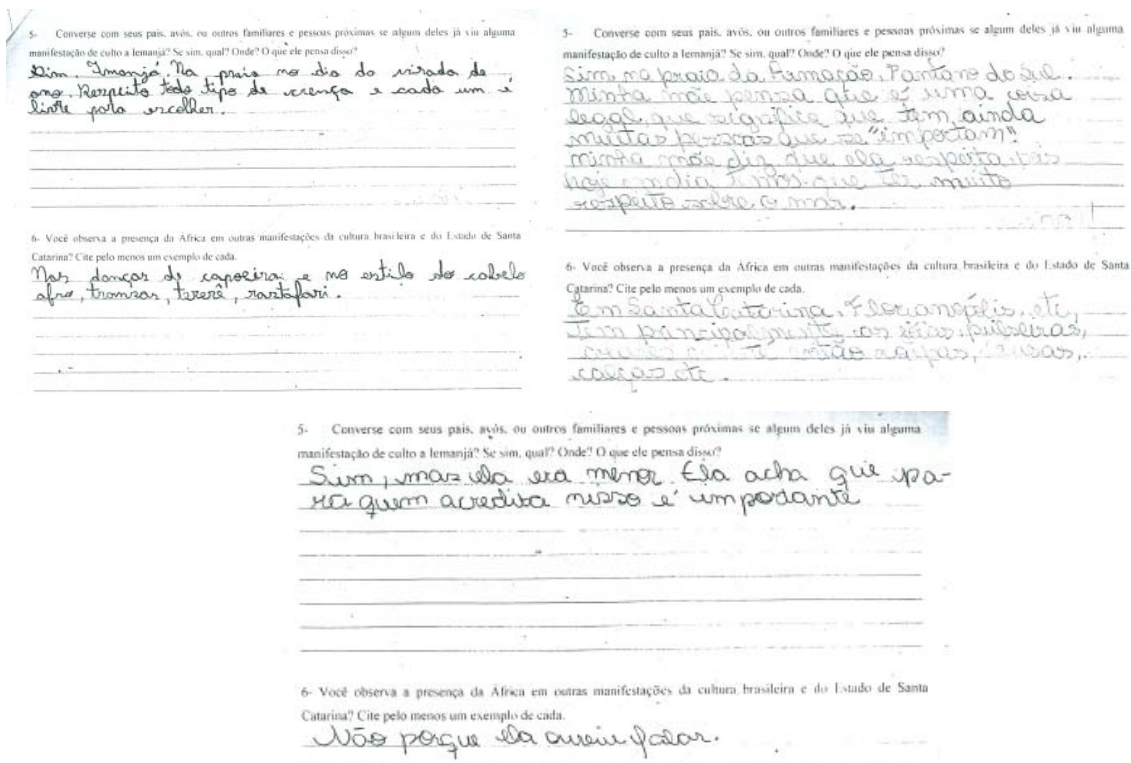 5- Converse com seus pais, avós, ou outros familiares e pessoas próximas se algum deles já viu alguma
manifestação de culto a Iemanjá? Se sim, qual? Onde? O que ele pensa disso?
Sim, Imanjá Na praia no dia da virada de
ano. Respeito todo tipo de crença e cada um é
livre para escolher.
6- Você observa a presença da África em outras manifestações da cultura brasileira e do Estado de Santa
Catarina? Cite pelo menos um exemplo de cada.
Nas danças de capoeira e no estilo do cabelo
afro, tranzas, tererê, rastafari.
5- Converse com seus pais, avós, ou outros familiares e pessoas próximas se algum deles já viu alguma
manifestação de culto a Iemanjá? Se sim, qual? Onde? O que ele pensa disso?
Sim, na praia da Armação, Pantano do Sul.
Minha mãe pensa que é uma coisa
legal, que significa que tem ainda
muitas pessoas que se "importam".
minha mãe diz que ela respeita
hoje em dia temos que ter muito
respeito sobre o mar.
6- Você observa a presença da África em outras manifestações da cultura brasileira e do Estado de Santa
Catarina? Cite pelo menos um exemplo de cada.
Em Santa Catarina, Florianópolis, etc,
Tem principalmente as pulseiras,
calças etc.
5- Converse com seus pais, avós, ou outros familiares e pessoas próximas se algum deles já viu alguma
manifestação de culto a Iemanjá? Se sim, qual? Onde? O que ele pensa disso?
Sim, mas ela era menor. Ela acha que pa-
ra quem acredita nisso é impodante
6- Você observa a presença da África em outras manifestações da cultura brasileira e do Estado de Santa
Catarina? Cite pelo menos um exemplo de cada.
Não porque ela falar.